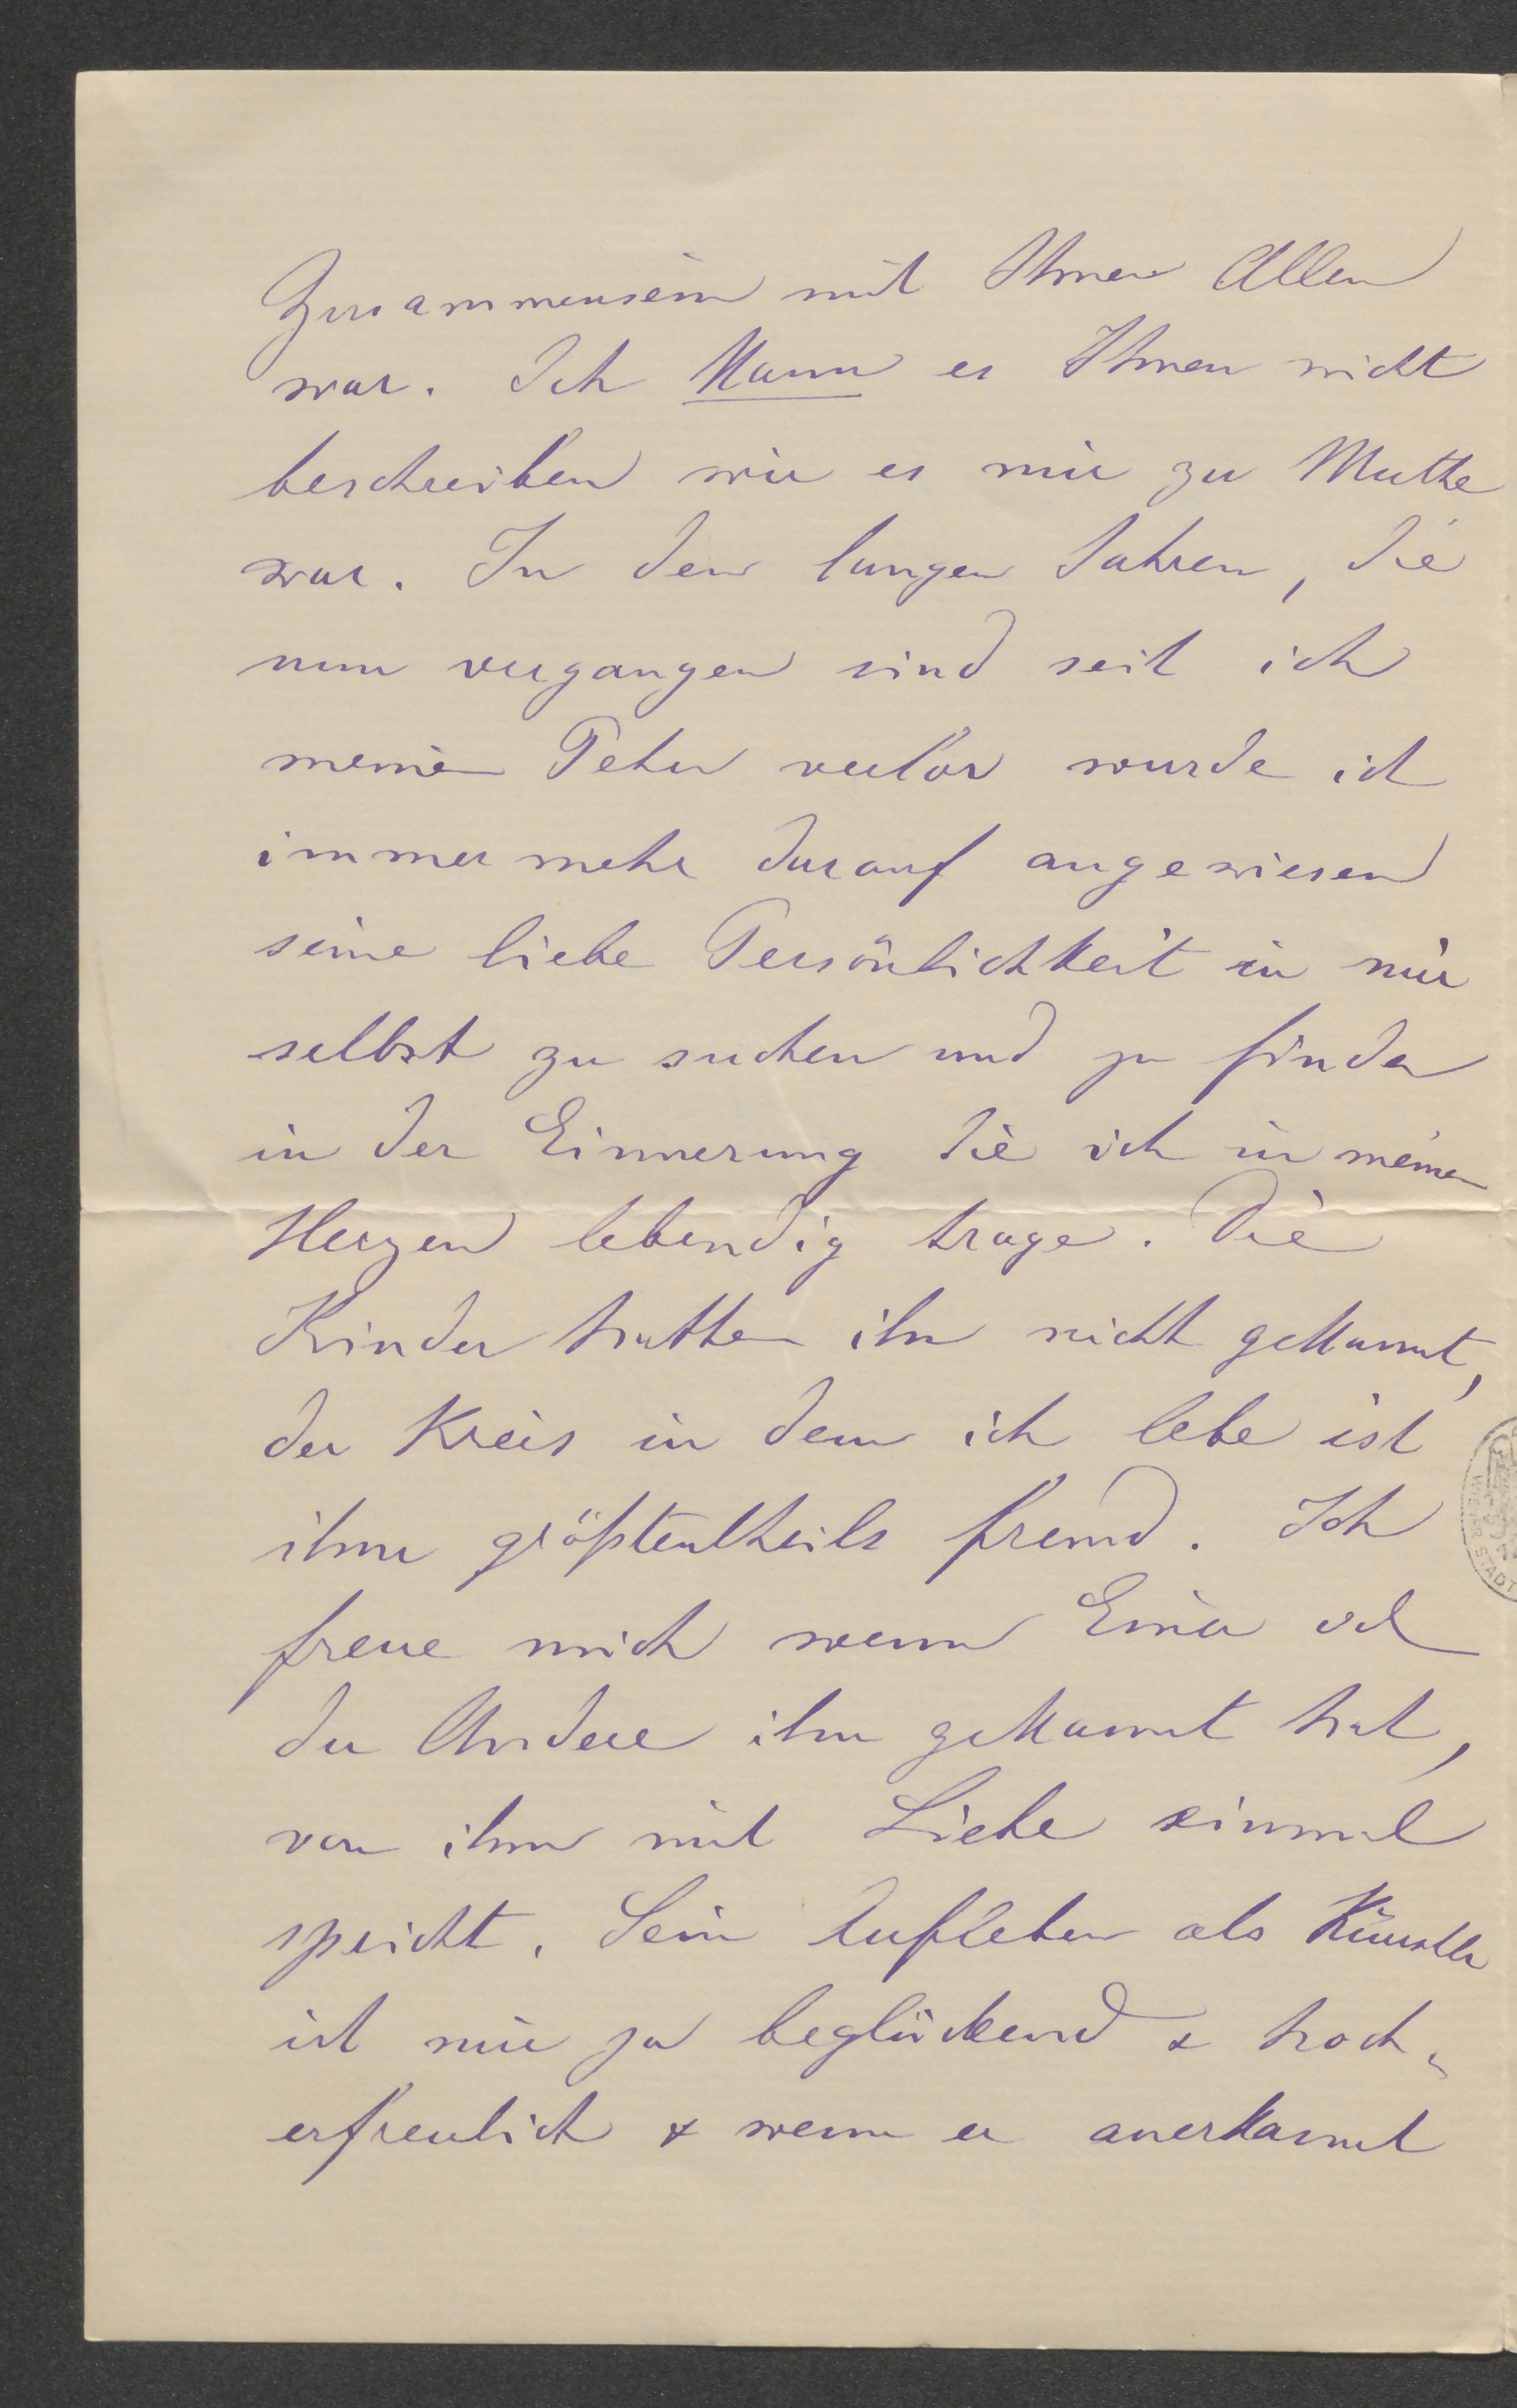 Zusammensein mit Ihnen Allen
war. Ich kann es Ihnen nicht
beschreiben wie es mir zu Muthe
war. In den langen Jahren, die
nun vergangen sind seit ich
meinen Peter verlor wurde ich
immer mehr darauf angewiesen
seine liebe Persönlichkeit in mir
selbst zu suchen und zu finden
in der Erinnerung die ich in meinem
Herzen lebendig trage. Die
Kinder hatten ihn nicht gekannt,
der Kreis in dem ich lebe ist
ihm größtentheils fremd. Ich
freue mich wenn Einer od
der Andere ihn gekannt hat,
von ihm mit Liebe einmal
spricht. Sein Aufleben als Künstler
ist mir ja beglückend & hoch„
erfreulich & wenn er anerkannt
WIENER STADT